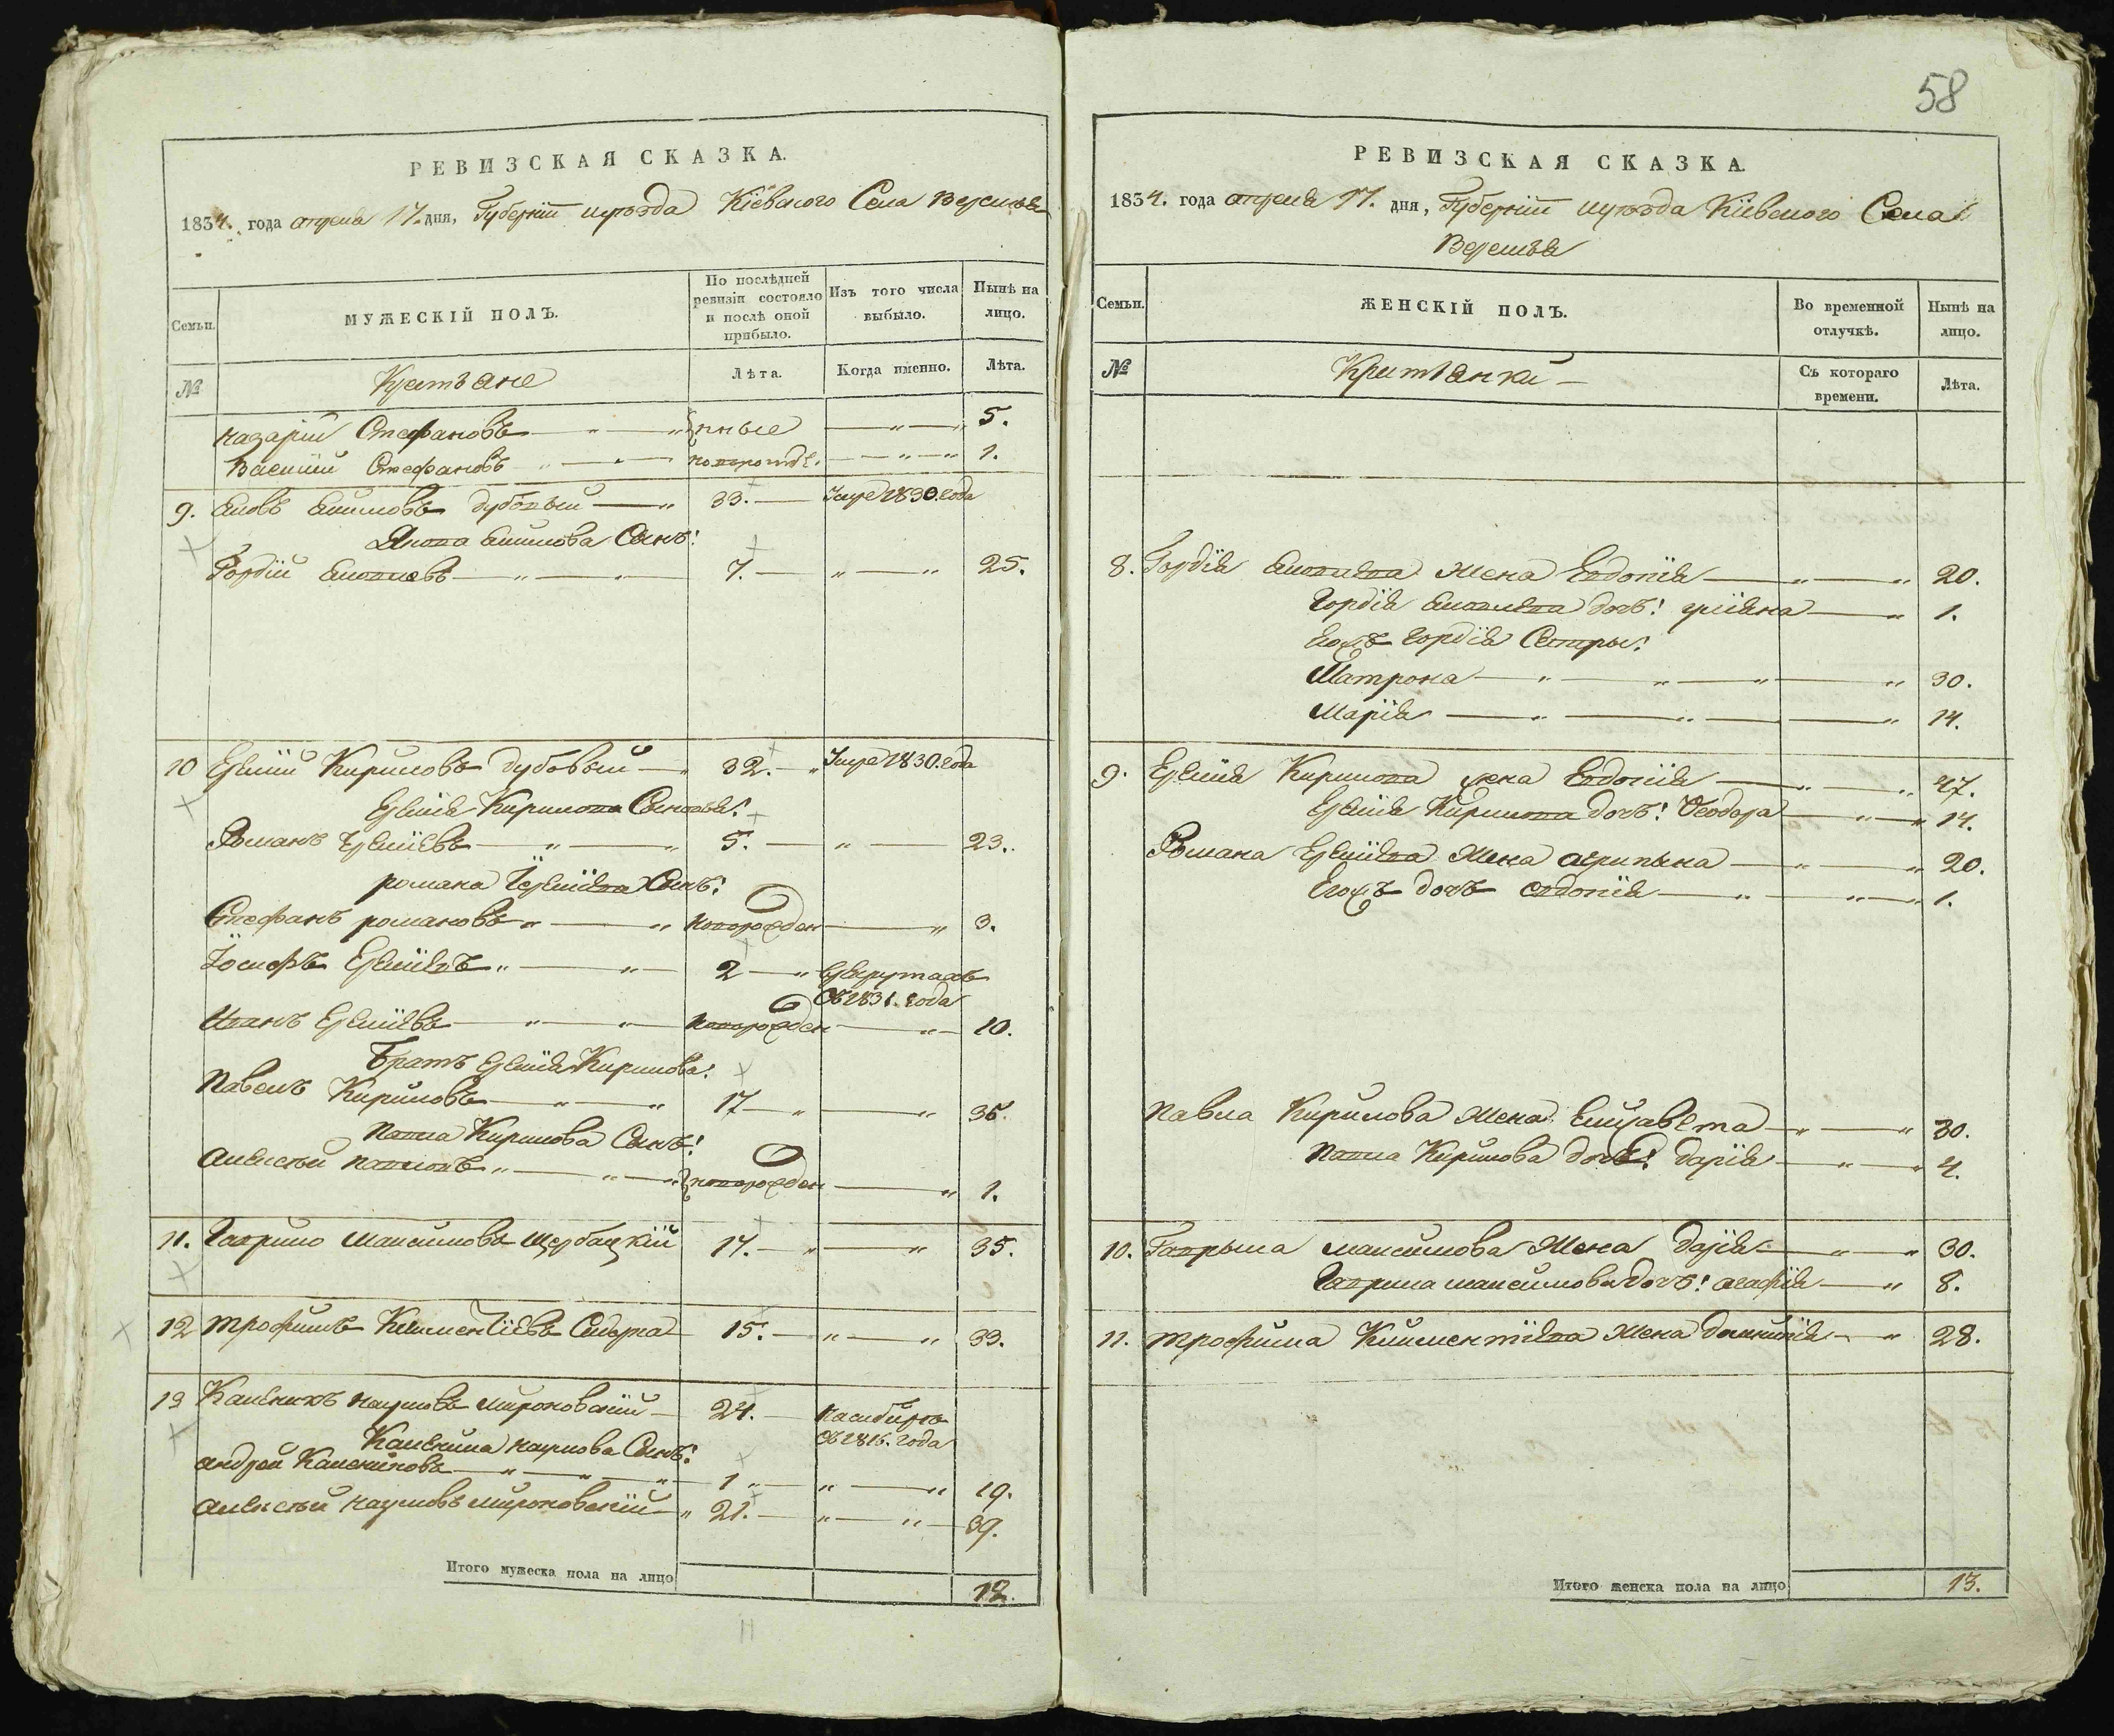 РЕВИЗСКАЯ СКАЗКА.
1834. года апреля 17. дня, Губерніи и уѣзда Кіевскаго Села
Семьи.
МУЖЕСКІЙ ПОЛЪ.
По послѣдней ревизіи состояло и послѣ оной прибыло.
Изъ того числа выбыло.
Нынѣ на лицо.
№
Крестьяне
Лѣта.
Когда именно.
Лѣта.
Назарій Стефановъ 5.
Василій Стефановъ 1.
9. Якимовъ Дубовый 33. Умре 1830. года
Якимова Сынъ:
Гордій 7. 25.
10 Еремій Кириловъ Дубовый 32. Умре 1830. года
Еремія Кирилова Сыновья:
Романъ Еремiевъ 5. 23.
Романа Еремiева Сынъ:
Стефанъ Романовъ новорожден 3.
Іосифъ Еремiевъ 2 въ рекрутахъ
съ 1831. года
Иванъ Еремiевъ новорожден 10.
Братъ Еремія Кирилова:
Павелъ Кириловъ 17 35.
Павла Кирилова Сынъ:
Алексѣй Павловъ новорожден 1.
11. Гаврило Максимовъ Щербацкій 17. 35.
12 Трофимъ Климентіевъ 15. 33.
13 Каленикъ Наумовъ Мироновскій 24. на сибиръ
съ 1816. года
Каленика Наумова Сынъ:
Андрей Калениковъ 1 19.
Алексѣй Наумовъ Мироновскій 21. 39.
Итого мужеска пола на лицо 12.
11
58
РЕВИЗСКАЯ СКАЗКА.
1834. года апреля 17. дня, Губерніи и уѣзда Кіевскаго Села
Семьи.
ЖЕНСКІЙ ПОЛЪ.
Во временной отлучкѣ.
Нынѣ на лицо.
№
Крестьянки
Съ котораго времени.
Лѣта.
8. Гордія жена Евдокія 20.
Гордія дочь: 1.
Его жъ Гордія Сестры:
Матрона 30.
Марія 14.
9. Еремія Кирилова жена Евдокія 47.
Еремія Кирилова дочь: Ѳеодора 14.
Романа Еремiева жена Агрипына 20.
Его жъ дочь Евдокія 1.
Павла Кирилова жена Елизавета 30.
Павла Кирилова дочь: Дарія 4.
10. Гаврыла Максимова жена Дарія 30.
Гаврила Максимова дочь: Агафія 8.
11. Трофима Климентіева жена Домникія 28.
Итого женска пола на лицо 13.